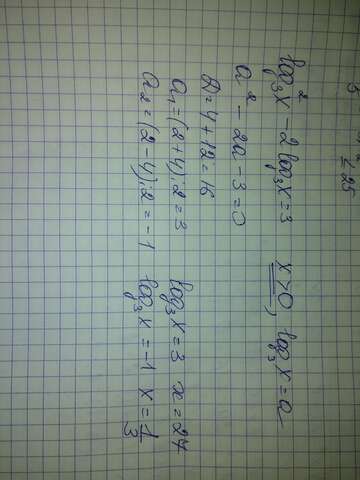 5
≤ 25
log₃²x - 2log₃x = 3   x > 0, log₃x = a
a² - 2a - 3 = 0
D = 4 + 12 = 16
a₁ = (2 + 4):2 = 3   log₃x = 3   x = 27
a₂ = (2 - 4):2 = -1   log₃x = -1   x = 1/3